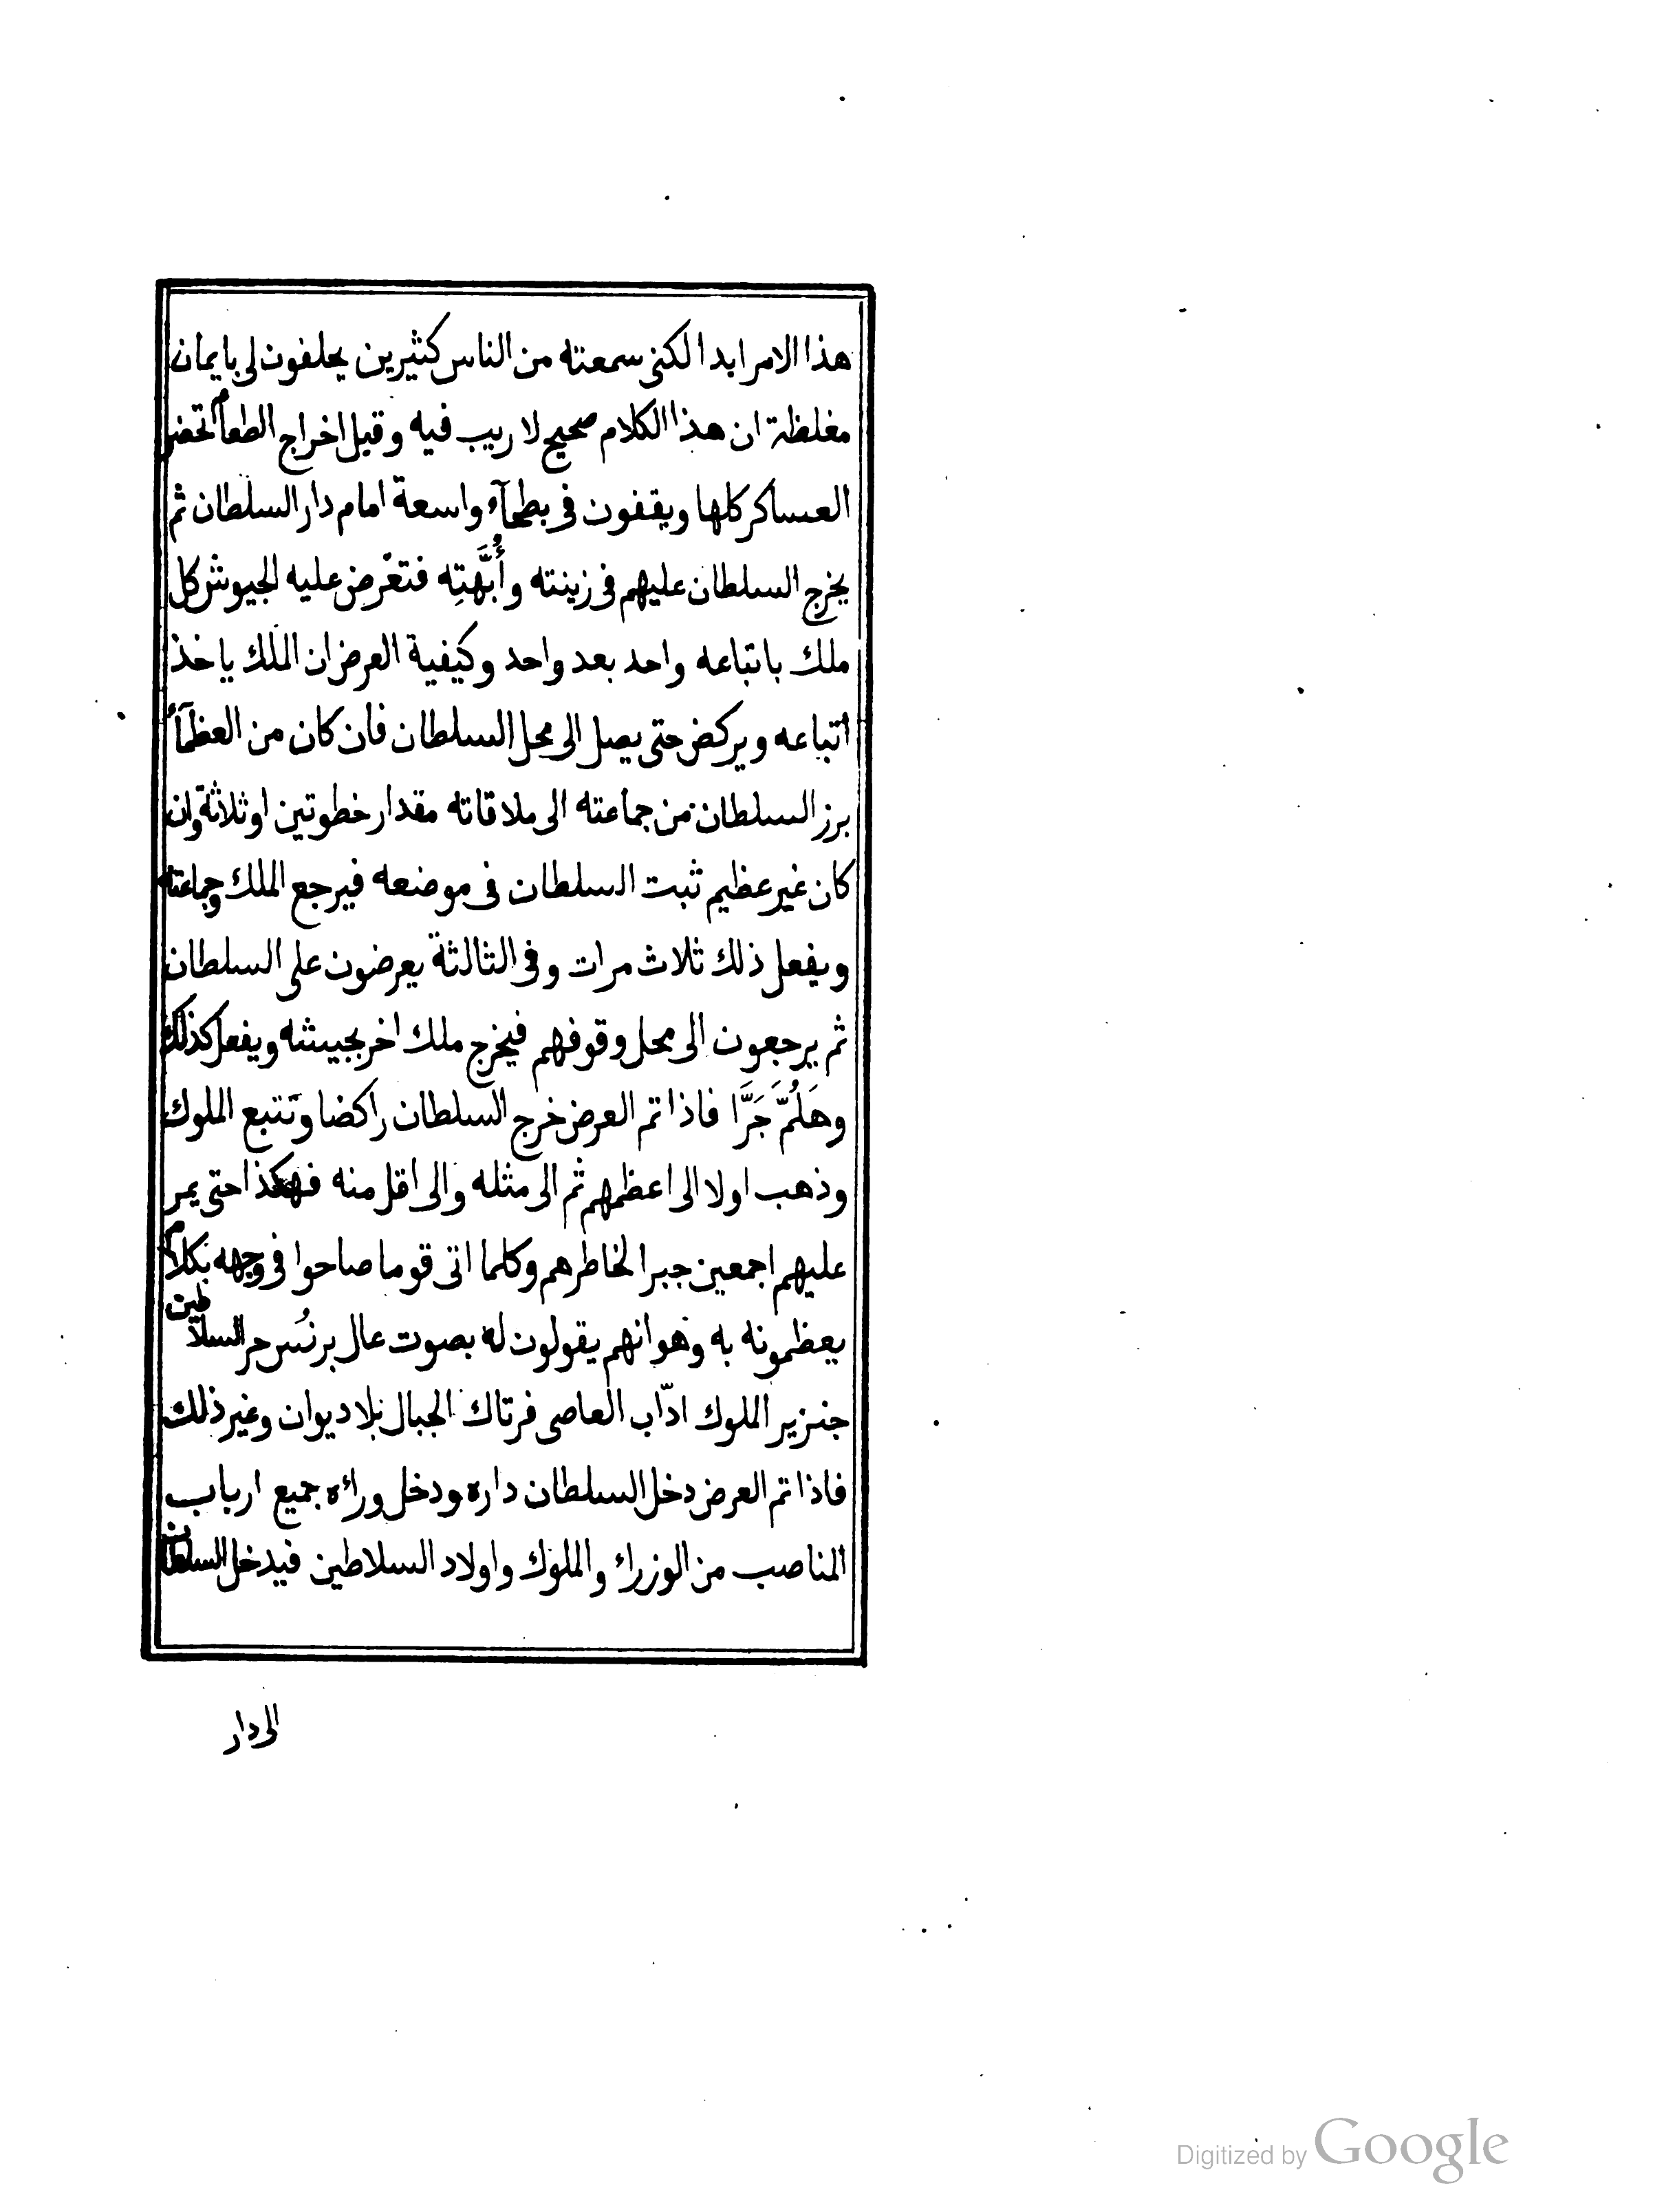 هذا الامر ابدا لكنى سمعته من الناس كثيرين يحلفون لى بايمان
مغلظة ان هذا الكلام صحيح لا ريب فيه وقيل اخراج الطعام تحضر
العساكر كلها ويقفون فى بطحآء واسعة امام دار السلطان ثم
يخرج السلطان عليهم فى زينته وأُبَّهتِه فتعْرض عليه الجيوش كل
ملك باتباعه واحد بعد واحد وكيفية العرض ان الملك ياخذ
أتباعه ويركض حتى يصل الى محل السلطان فان كان من العظمآء
برز السلطان من جماعته الى ملاقاته مقدار خطوتين او ثلاثة وان
كان غير عظيم ثبت السلطان فى موضعه فيرجع الملك وجماعته
ويفعل ذلك ثلاث مرات وفى الثالثة يعرضون على السلطان
ثم يرجعون الى محل وقوفهم فيخرج ملك اخر بجيشه ويفعل كذلك
وهَلُمَّ جَرَّا فاذا تم العرض خرج السلطان راكضا وتتبع الملوك
وذهب اولا الى اعظمهم ثم الى مثله والى اقل منه فهكذا حتى يمر
عليهم اجمعين جبرا لخاطرهم وكلما اتى قوما صاحوا فى وجهه بكلام
يعظمونه به وهو انهم يقولون له بصوت عال برنُس حر السلاطين
جنزير الملوك ادّاب العاصى فرتاك الجبال بلا ديوان وغير ذلك
فاذا تم العرض دخل السلطان داره ودخل وراءه جميع ارباب
المناصب من الوزراء والملوك واولاد السلاطين فيدخل السلطان
الى دار
Digitized by Google